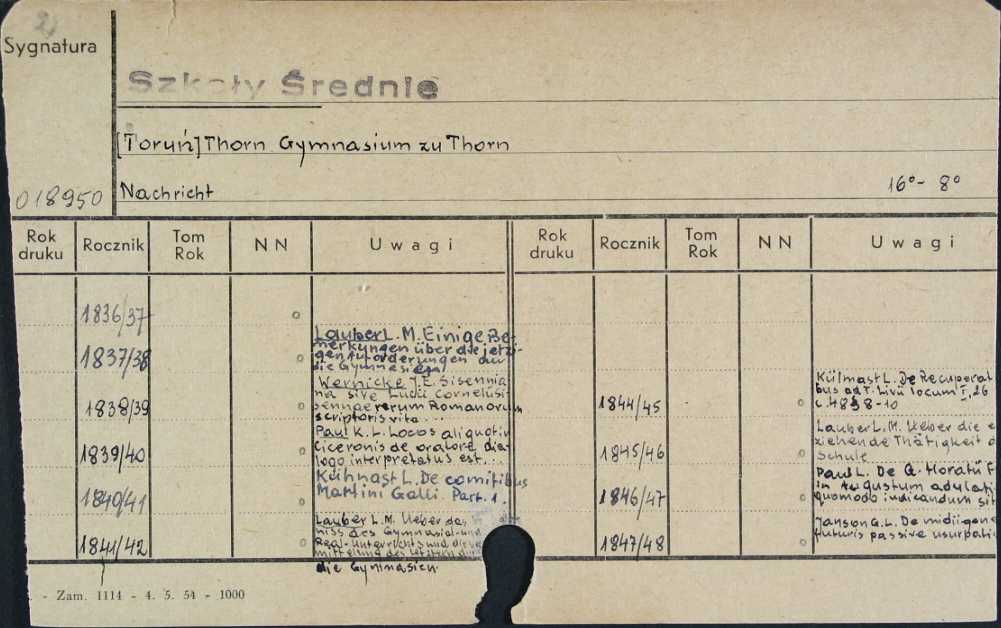 2)
Sygnatura
Szkoły Średnie
[Toruń] Thorn Gymnasium zu Thorn
018950
Nachricht
16° - 8°
Rok druku Rocznik Tom Rok NN Uwagi Rok druku Rocznik Tom Rok NN Uwagi
1836/37 o
1837/38 o Lauber L. M. Einige Be-
merkungen über die jetzi-
gen Anforderungen an
die Gymnasien
1838/39 o Wernicke J. E. Sisennia
na sive Lucii Cornelii Si
sennae rerum Romanorum
scriptoris vita.
1839/40 o Paul K. L. Locos aliquot in
Ciceronis de oratore dia-
logo interpretatus est...
1840/41 o Kühnast L. De comitibus
Martini Galli. Part. 1.
1841/42 o Lauber L. M. Ueber das
niss des Gymnasial- und
Real-Unterrichts und die ver
mittelung des letztern
die Gymnasien.
1844/45 o Kühnast L. De Recuperato
bus ad T. Livii locum I, 26
c. 48 § 8-10
1845/46 o Lauber L. M. Ueber die e
ziehende Thätigkeit d
Schule
1846/47 o Paul L. De Q. Horatii F
in Augustum adulati
quomodo iudicandum sit
1847/48 o Janson G. L. De
futuris passive usurpati
- Zam. 1114 - 4. 5. 54 - 1000